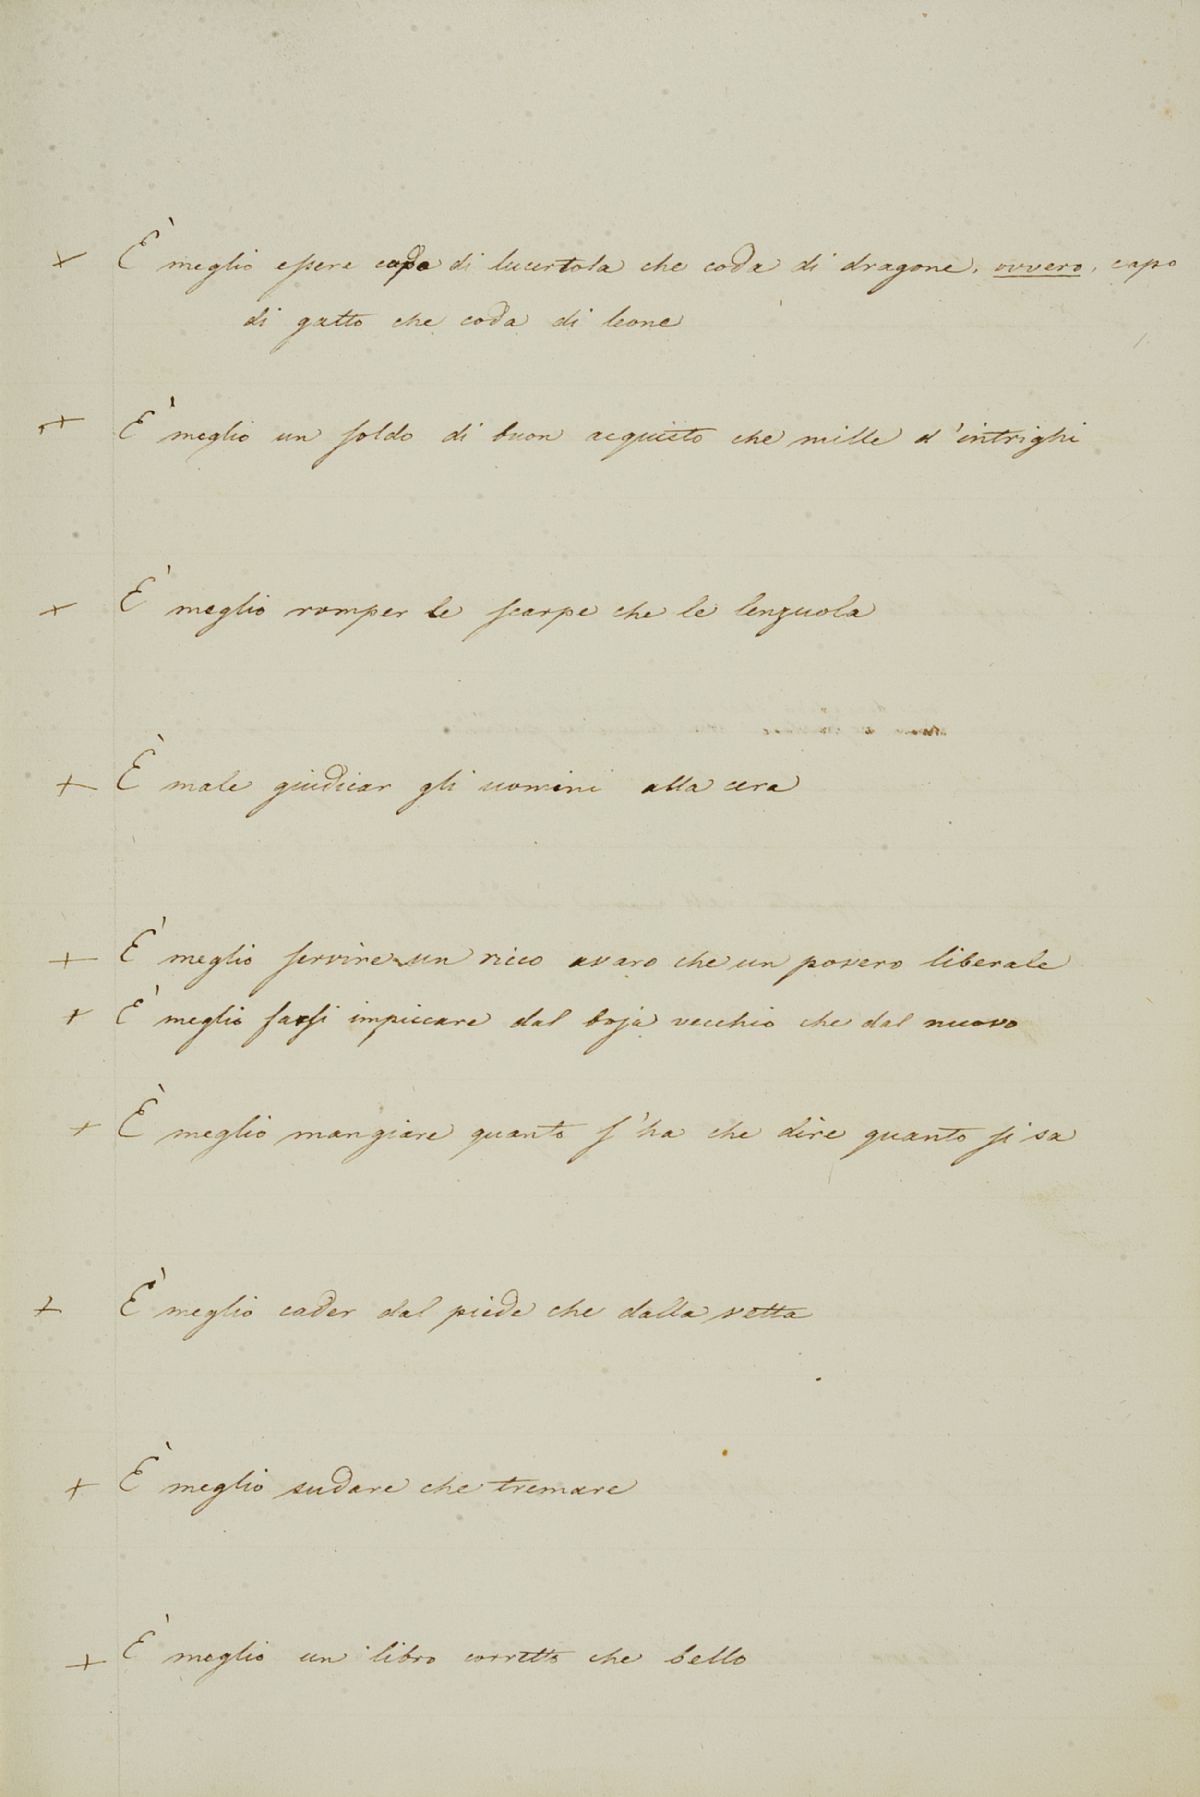 + È meglio essere capo di lucertola che coda di dragone, ovvero, capo
di gatto che coda di leone
+ È meglio un soldo di buon acquisto che mille d'intrighi
+ È meglio romper le scarpe che le lenzuola
+ È male giudicar gli uomini alla cera
+ È meglio servire un ricco avaro che un povero liberale
+ È meglio farsi impiccare dal boja vecchio che dal nuovo
+ È meglio mangiare quanto s'ha che dire quanto si sa
+ È meglio cader dal piede che dalla vetta
+ È meglio sudare che tremare
+ È meglio un libro corretto che bello